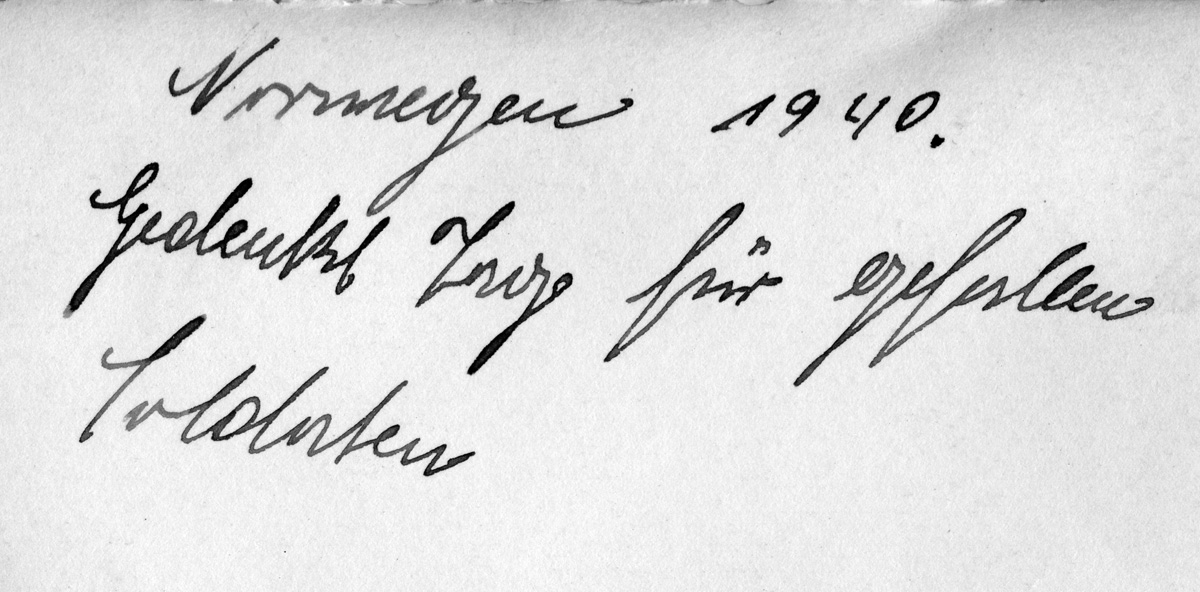 Norwegen 1940.
Gedenkt Tag für gefallen
Soldaten